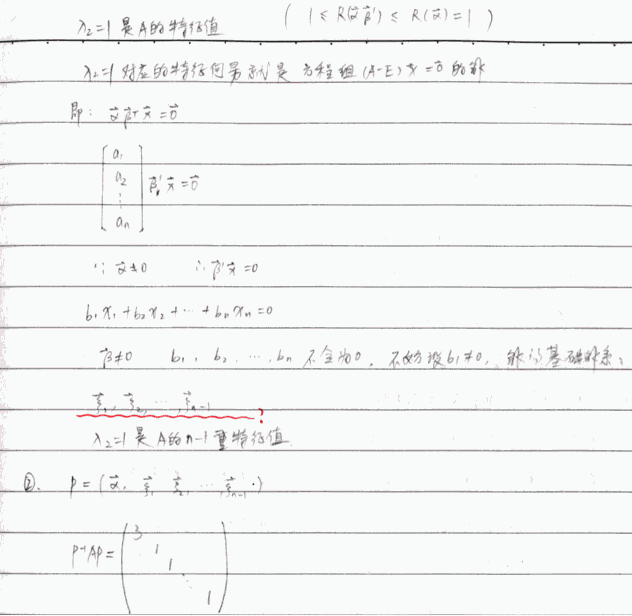 λ₂=1 是A的特征值 ( 1 ≤ R(α⃗β⃗') ≤ R(α⃗)=1 )
λ₂=1 对应的特征向量就是 方程组 (A-E)x⃗=0⃗ 的解
即: α⃗β⃗ᵀx⃗=0⃗
[a₁ a₂ ⋮ aₙ] β⃗'x⃗=0⃗
∵ α⃗≠0 ∴ β⃗'x⃗=0
b₁x₁+b₂x₂+…+bₙxₙ=0
β⃗≠0 b₁, b₂, …, bₙ 不全为0, 不妨设b₁≠0, 解得基础解系:
ξ⃗₁, ξ⃗₂, …, ξ⃗ₙ₋₁ ?
λ₂=1 是A的n-1重特征值.
②. P=(α⃗, ξ⃗₁ ξ⃗₂, …, ξ⃗ₙ₋₁)
P⁻¹AP= (3 1 1 ⋱ 1)